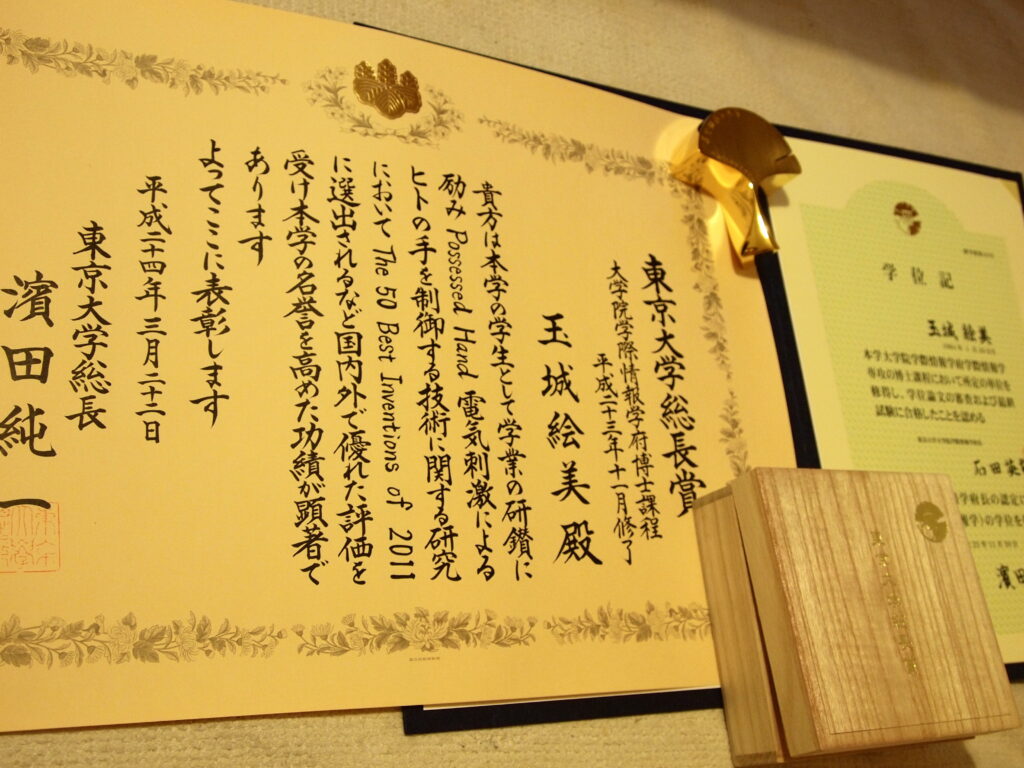 東京大学総長賞
大学院学際情報学府博士課程
平成二十三年十一月修了
玉城絵美殿
貴方は本学の学生として学業の研鑽に
励み Possessed Hand 電気刺激による
ヒトの手を制御する技術に関する研究
において The 50 Best Inventions of 2011
に選出されるなど国内外で優れた評価を
受け本学の名誉を高めた功績が顕著で
あります
よってここに表彰します
平成二十四年三月二十二日
東京大学総長
濱田純一
学位記
玉城絵美
本学大学院学際情報学府学際情報学
専攻の博士課程において所定の単位を
修得し、学位論文の審査および最終
試験に合格したことを認める
石田英
学府長の認定に
報学)の学位を
濱田